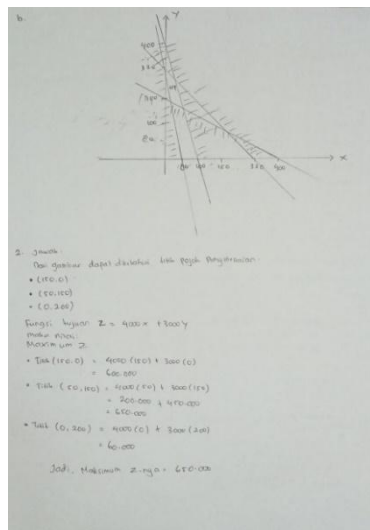 b.
Y
400
100
X
2. Jawab.
Dari gambar dapat diketahui titik pojok Penyelesaian.
• (150,0)
• (50,150)
• (0,200)
Fungsi tujuan Z = 4000x + 3000y
maka nilai:
Maximum Z.
• Titik (150.0) = 4000 (150) + 3000 (0)
= 600.000
• Titik (50,150) = 4000 (50) + 3000 (150)
= 200.000 + 450.000
= 650.000
• Titik (0,200) = 4000 (0) + 3000 (200)
= 60.000
Jadi, Maksimum Z-nya = 650.000